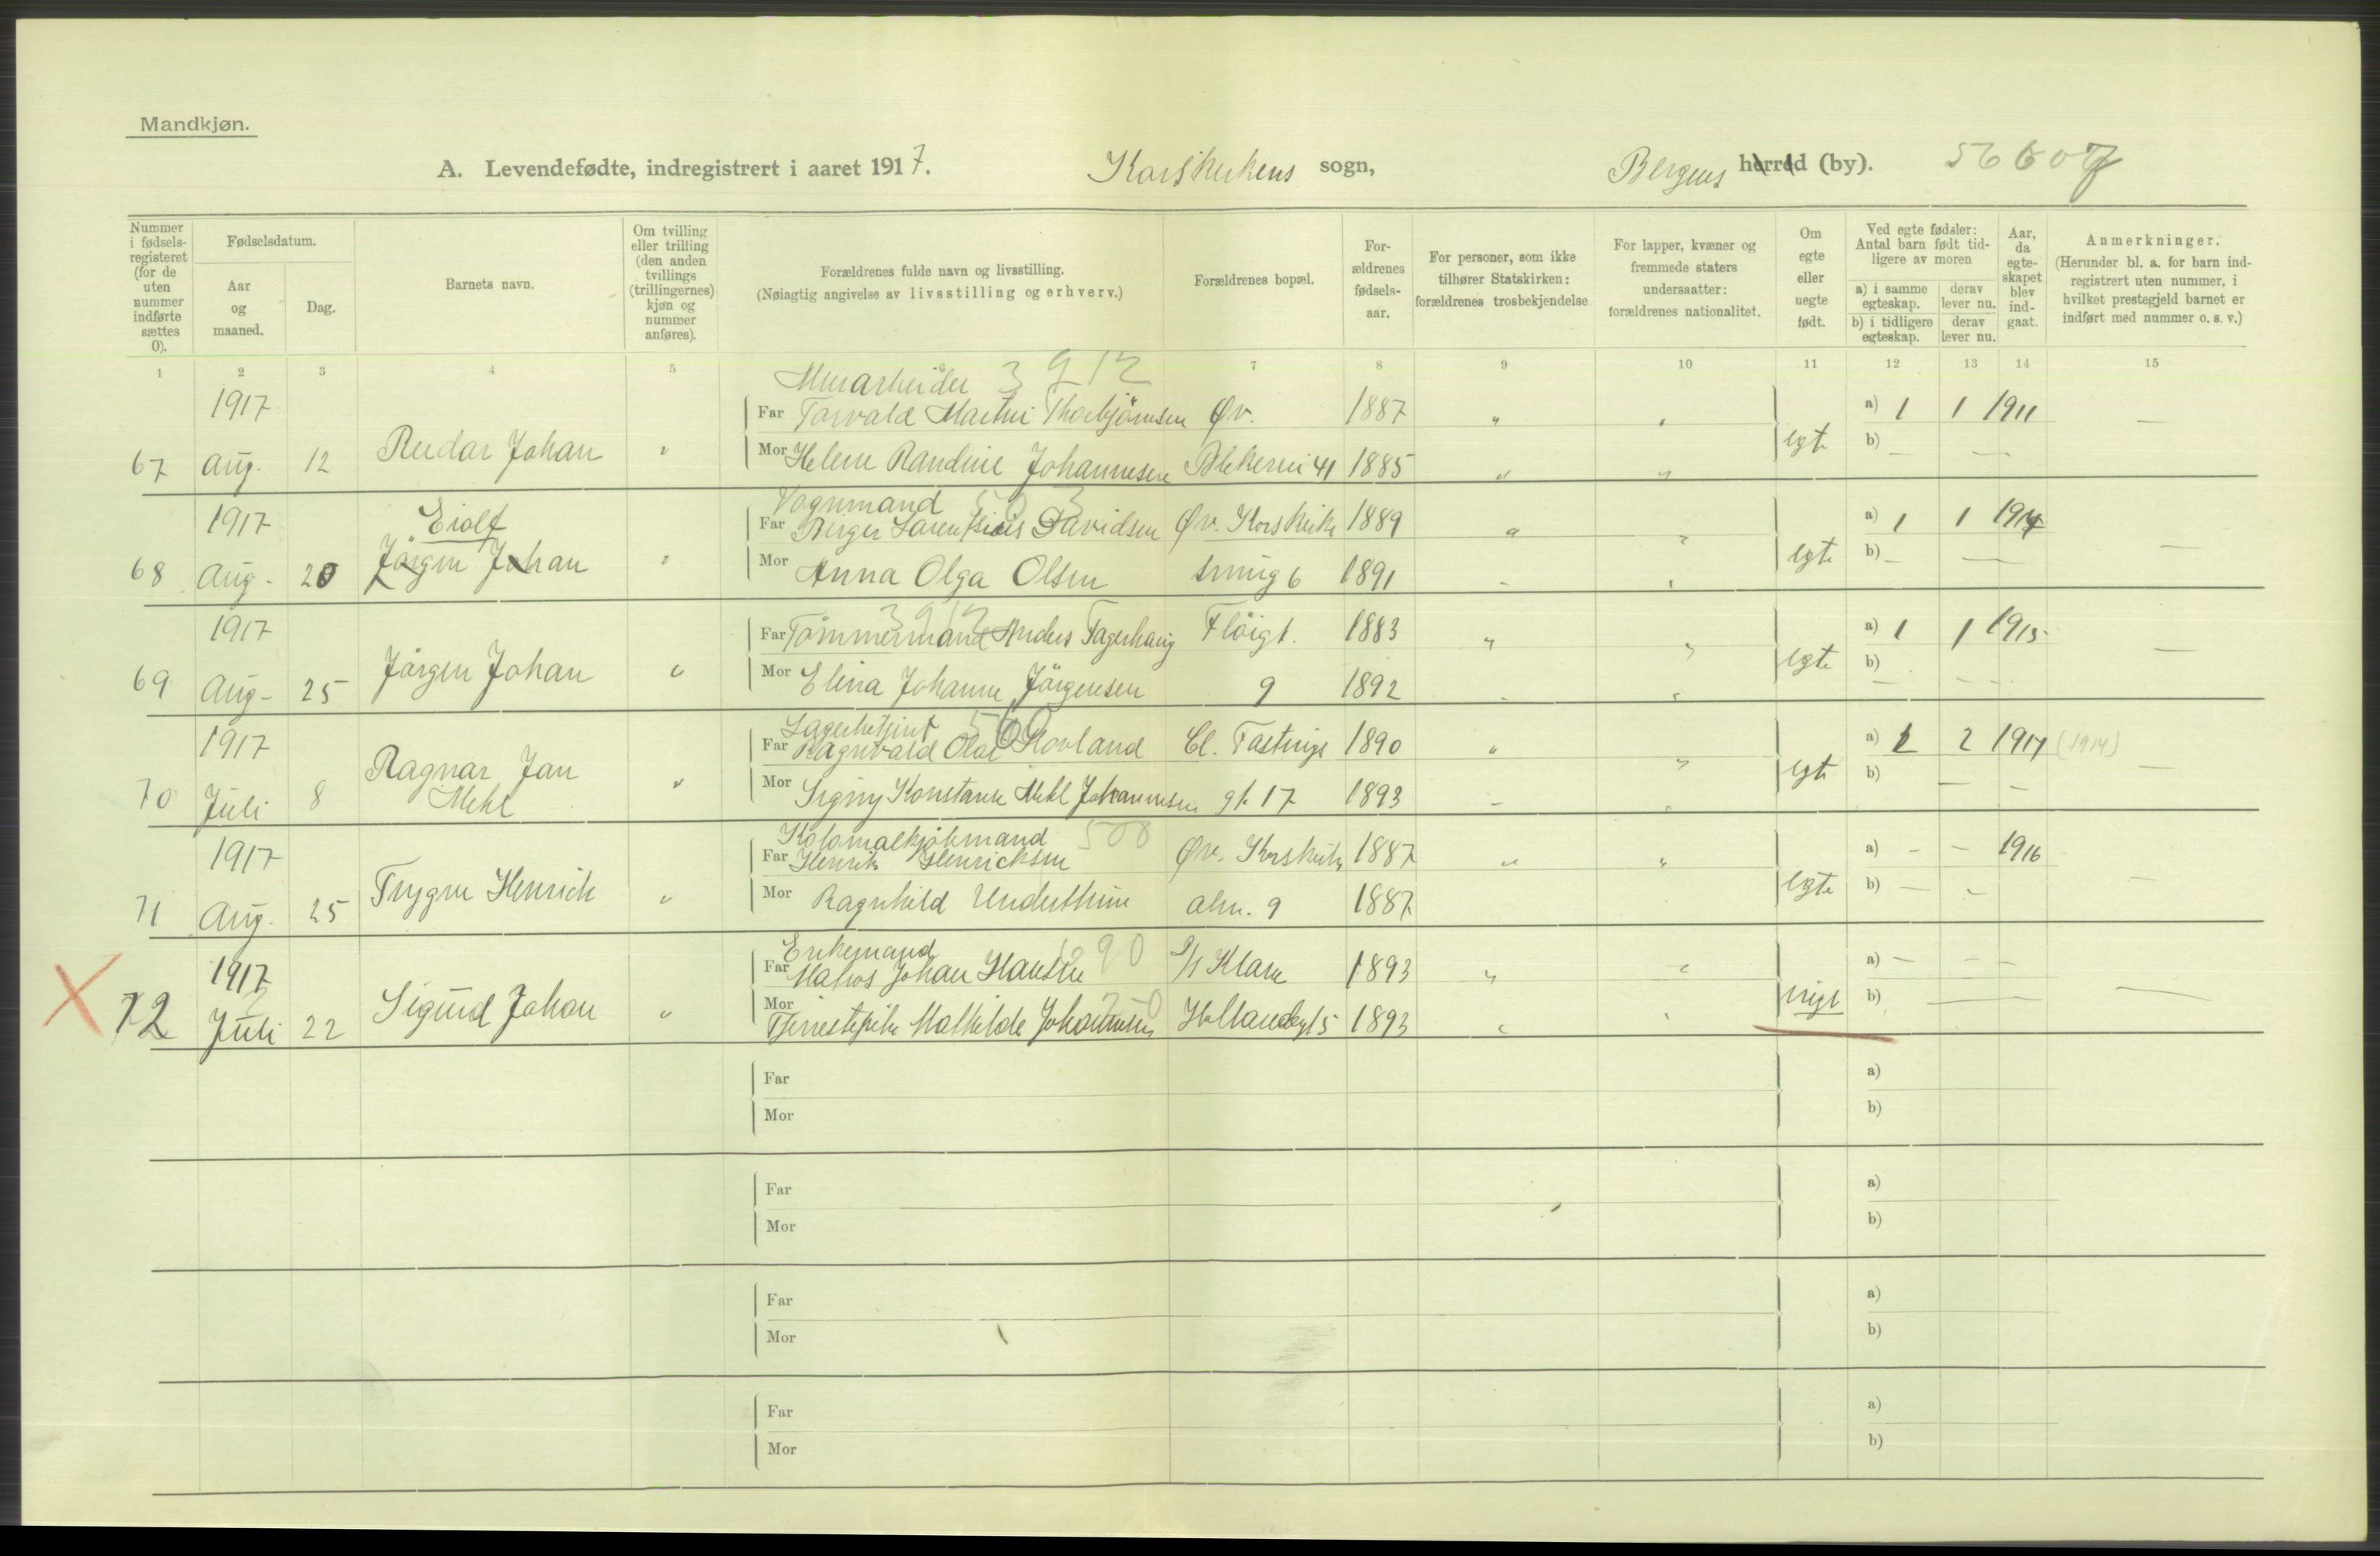 Mandkjøn.
A. Levendefødte, indregistrert i aaret 1917. Korskirkens sogn, Bergens herred (by). 56607
Nummer i fødsels-registeret (for de uten nummer indførte sættes 0).
Fødselsdatum.
Aar og maaned.
Dag.
Barnets navn.
Om tvilling eller trilling (den anden tvillings (trillingernes) kjøn og nummer anføres).
Forældrenes fulde navn og livsstilling.
(Nøiagtig angivelse av livsstilling og erhverv.)
Forældrenes bopæl.
For-ældrenes fødsels-aar.
For personer, som ikke tilhører Statskirken: forældrenes trosbekjendelse.
For lapper, kvæner og fremmede staters undersaatter: forældrenes nationalitet.
Om egte eller uegte født.
Ved egte fødsler: Antal barn født tid-ligere av moren
a) i samme egteskap. derav lever nu.
b) i tidligere egteskap. derav lever nu.
Aar, da egte-skapet blev ind-gaat.
Anmerkninger.
(Herunder bl. a. for barn ind-registrert uten nummer, i hvilket prestegjeld barnet er indført med nummer o. s. v.)
1 2 3 4 5 6 7 8 9 10 11 12 13 14 15
Murarbeider 3912
1917 Far Torvald Martin Thorbjörnsen Øv. 1887 " " a) 1 1 1911 —
67 Aug. 12 Reidar Johan " Mor Helene Randine Johannesen Blekevei 41 1885 " " egte b) — —
Vognmand 503
1917 Eiolf Far Birger Laurentius Davidsen Øv. Korskirke 1889 " " a) 1 1 1914
68 Aug. 20 Jörgen Johan " Mor Anna Olga Olsen smug 6 1891 " " egte b) — — —
3912
1917 Far Tömmermand Anders Fagerhaug Flöigt. 1883 " " a) 1 1 1915
69 Aug. 25 Jörgen Johan " Mor Elina Johanne Jörgensen 9 1892 " " egte b) — — —
Lagerbetjent 560
1917 Far Ragnvald Olai Hovland Cl. Fastings 1890 " " a) 2 2 1914 (1914)
70 Juli 8 Ragnar Jan Mehl " Mor Signy Konstanse Mehl Johannesen gt. 17 1893 " " egte b) — — —
Kolonialkjöbmand 508
1917 Far Henrik Henricksen Øv. Korskirke 1887 " " a) — — 1916
71 Aug. 25 Trygve Henrich " Mor Ragnhild Underthun alm. 9 1887 egte b) — — —
Enkemand 290
1917 Far Matros Johan Hansen S/S Klare 1893 " " a) — — —
72 Juli 22 Sigurd Johan " Mor Tjenestepike Mathilde Johannesen Hollandergt 5 1893 " " uegte b) — — —
Far a)
Mor b)
Far a)
Mor b)
Far a)
Mor b)
Far a)
Mor b)